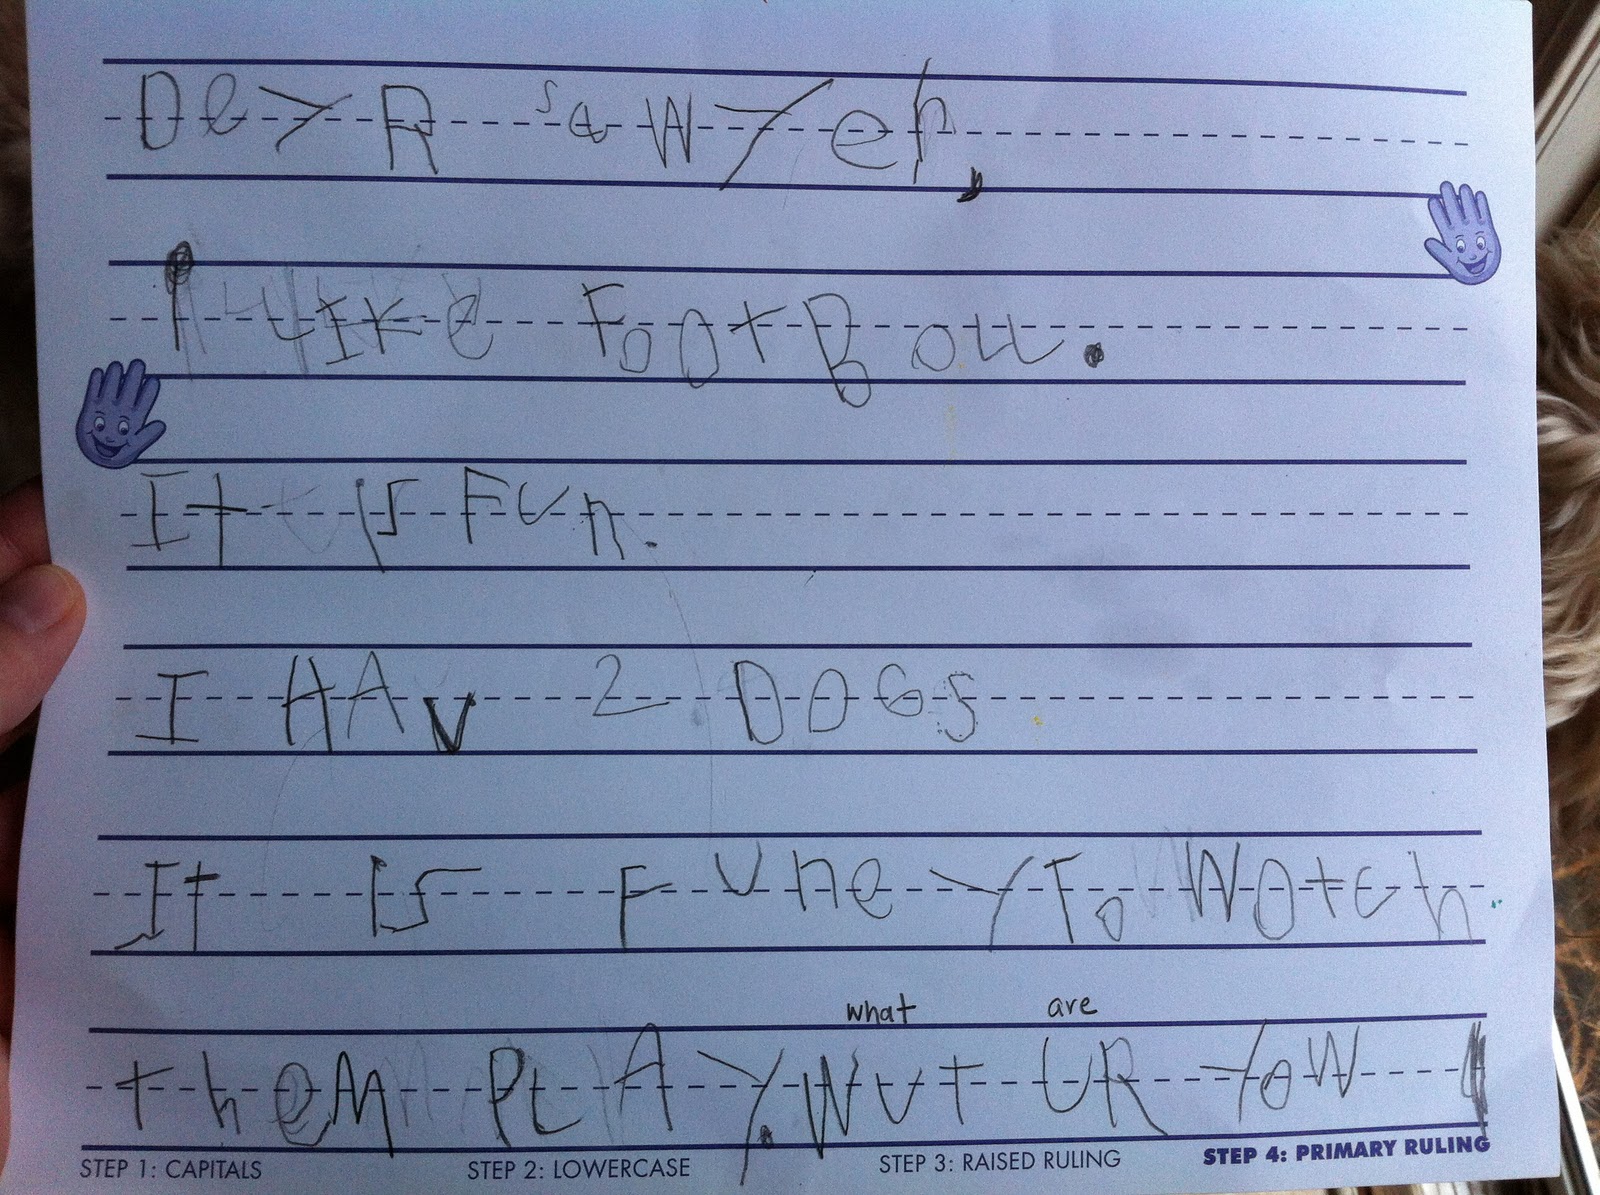 DeyR sawyeh,
I like FootBoll.
It is Fun.
I HAv 2 DOGS
It Is Fune y To WOtch
what are
theM PLAy. Wut UR YoW
STEP 1: CAPITALS STEP 2: LOWERCASE STEP 3: RAISED RULING STEP 4: PRIMARY RULING